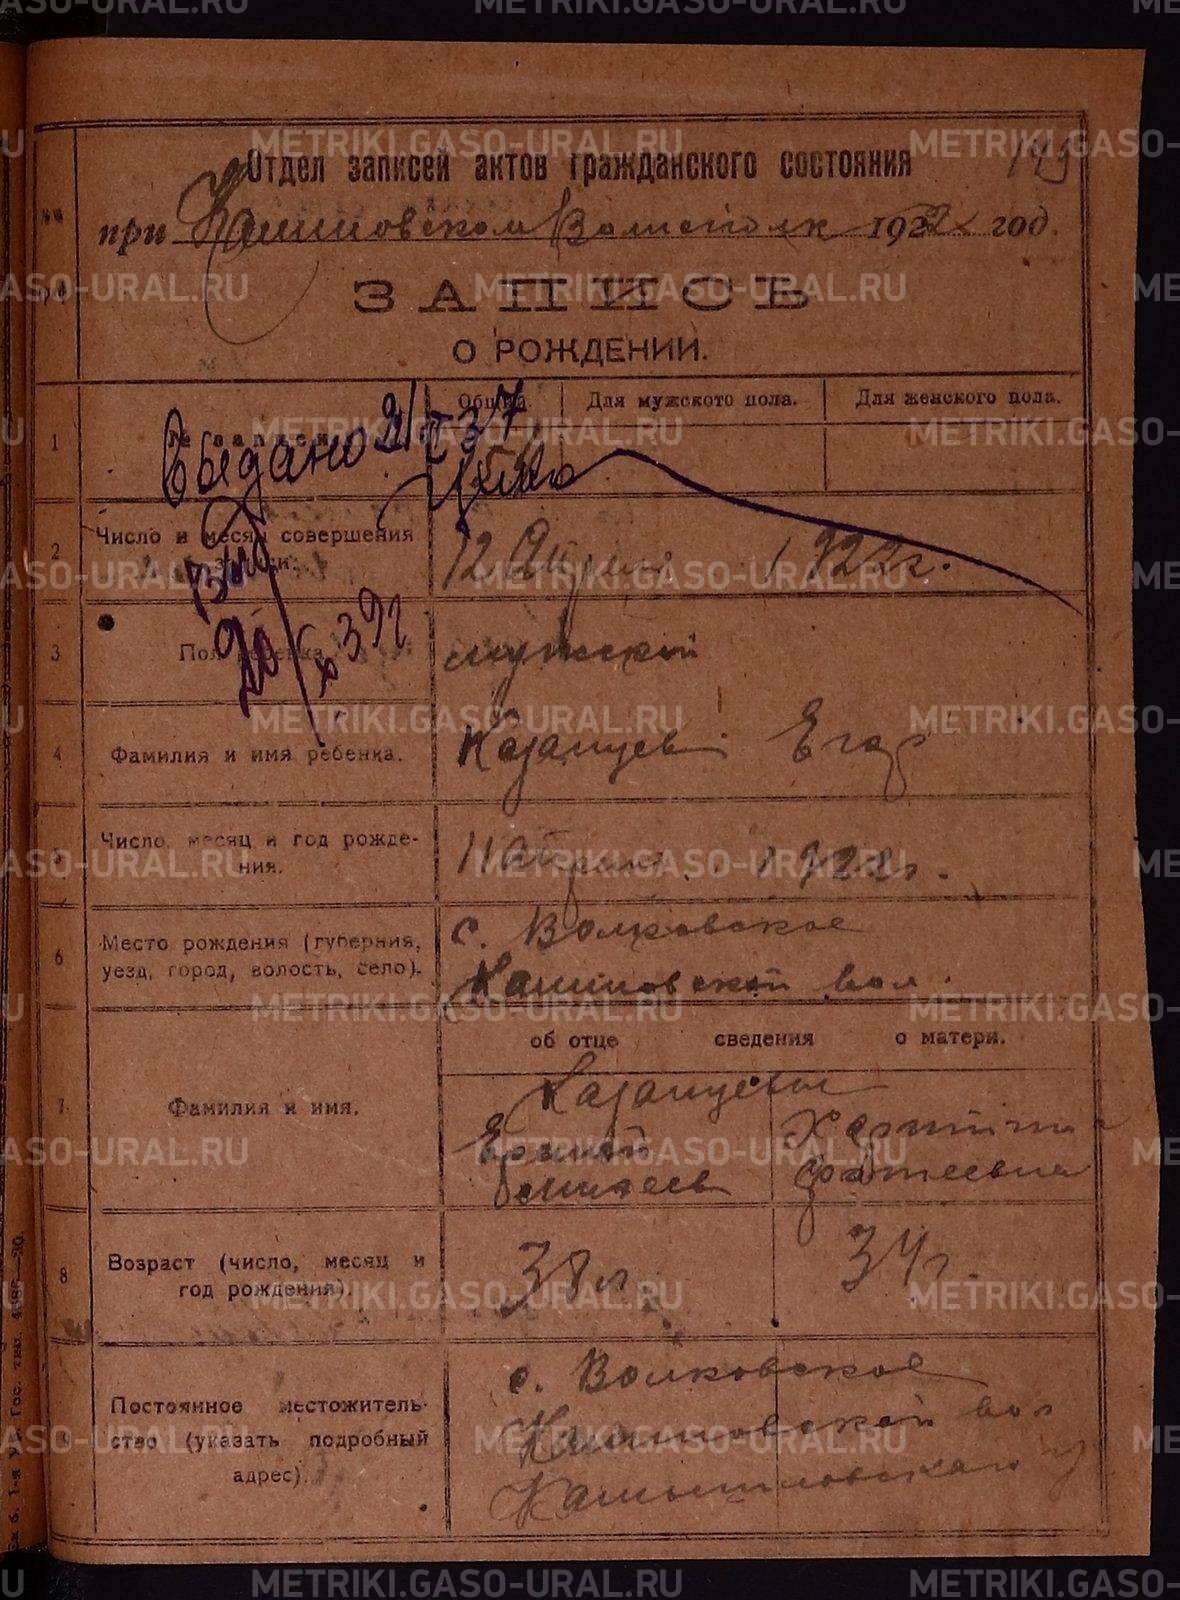 METRIKI.GASO-URAL.RU
145
Отдел записей актов гражданского состояния
при Кашиновском Волисполк 1922 год.
ЗАПИСЬ
О РОЖДЕНИИ.
Общий Для мужского пола. Для женского пола.
1 № записи
Выдано 2/II 37
2 Число и месяц совершения записи. 12 Апреля 1922 г.
20/X 39 г
3 Пол ребенка мужской
4 Фамилия и имя ребенка. Казанцев Егор
5 Число, месяц и год рожде-
ния. 11 апреля 1922 г.
6 Место рождения (губерния,
уезд, город, волость, село). с. Волковское
Кашиновской вол.
об отце сведения о матери.
7 Фамилия и имя. Казанцевы
Еремей Харитина
Фатеевна
8 Возраст (число, месяц и
год рождения). 38 л. 34 г.
9 Постоянное местожитель-
ство (указать подробный
адрес). с. Волковское
Кашиновской вол
Камышловскаго у